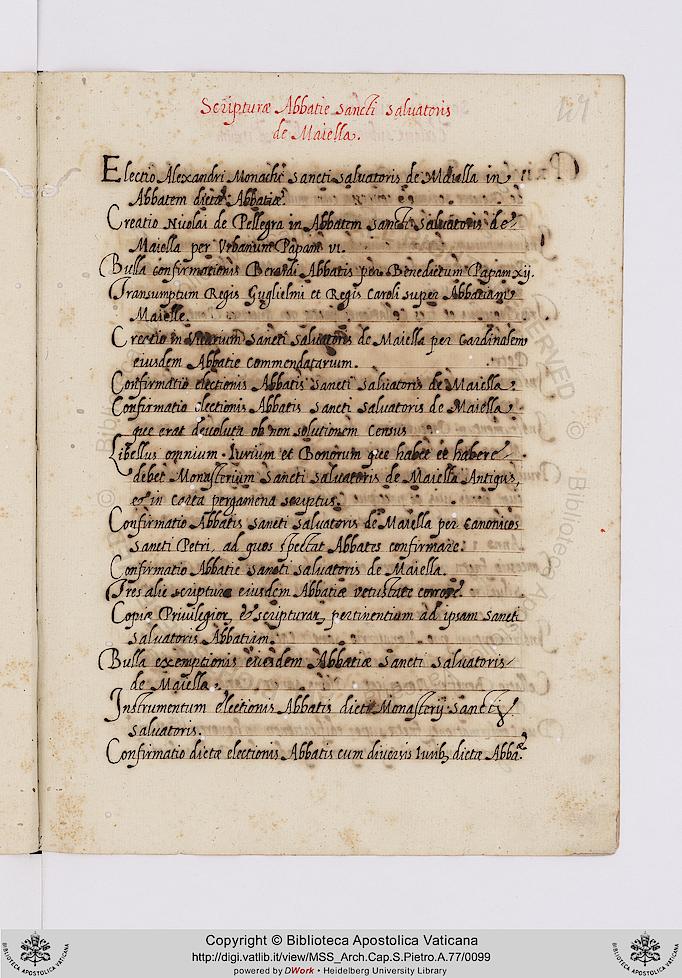 Scripturæ Abbatie sancti salvatoris
de Maiella.
Electio Alexandri Monachi sancti salvatoris de Maiella in
Abbatem dictæ Abbatiæ.
Creatio Nicolai de Pellegra in Abbatem sancti salvatoris de
Maiella per Urbanum Papam vi.
Bulla confirmationis Berardi Abbatis per Benedictum Papam xij.
Transumptum Regis Guglielmi et Regis Caroli super Abbatiam
Maielle.
Creatio in Vicarium sancti salvatoris de Maiella per Cardinalem
eiusdem Abbatie commendatarium.
Confirmatio electionis Abbatis sancti salvatoris de Maiella.
Confirmatio electionis Abbatis sancti salvatoris de Maiella
que erat devoluta ob non solutionem census
Libellus omnium Iurium et Bonorum que habet et habere
debet Monasterium sancti salvatoris de Maiella Antiqus
et in carta pergamena scriptus.
Confirmatio Abbatis sancti salvatoris de Maiella per canonicos
sancti Petri, ad quos spectat Abbates confirmare.
Confirmatio Abbatie sancti salvatoris de Maiella.
Tres alie scripture eiusdem Abbatiæ vetustate corrose.
Copiæ Privilegior et scripturar pertinentium ad ipsam sancti
salvatoris Abbatiam.
Bulla exemptionis eiusdem Abbatiæ sancti salvatoris
de Maiella.
Instrumentum electionis Abbatis dicti Monasterij sancti
salvatoris.
Confirmatio dictæ electionis Abbatis cum diversis Iurib dictæ Abbaæ.
Copyright © Biblioteca Apostolica Vaticana
http://digi.vatlib.it/view/MSS_Arch.Cap.S.Pietro.A.77/0099
powered by DWork • Heidelberg University Library